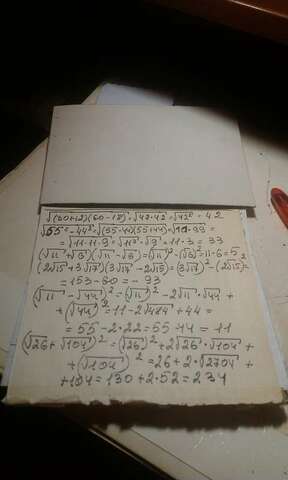 √(30+12)(30-12) = √42·42 = √42² = 42
√55² - 44² = √(55-44)(55+44) = √11·99 =
= √11·11·9 = √11² · √9 = 11·3 = 33
(√11 + √6)(√11 - √6) = (√11)² - (√6)² = 11-6 = 5
(2√15 + 3√17)(3√17 - 2√15) = (3√17)² - (2√15)² =
= 153 - 60 = - 93
(√11 - √44)² = (√11)² - 2√11 · √44 +
+ (√44)² = 11 - 2√484 + 44 =
= 55 - 2·22 = 55 - 44 = 11
(√26 + √104)² = (√26)² + 2√26 · √104 +
+ (√104)² = 26 + 2·√2704 +
+ 104 = 130 + 2·52 = 234